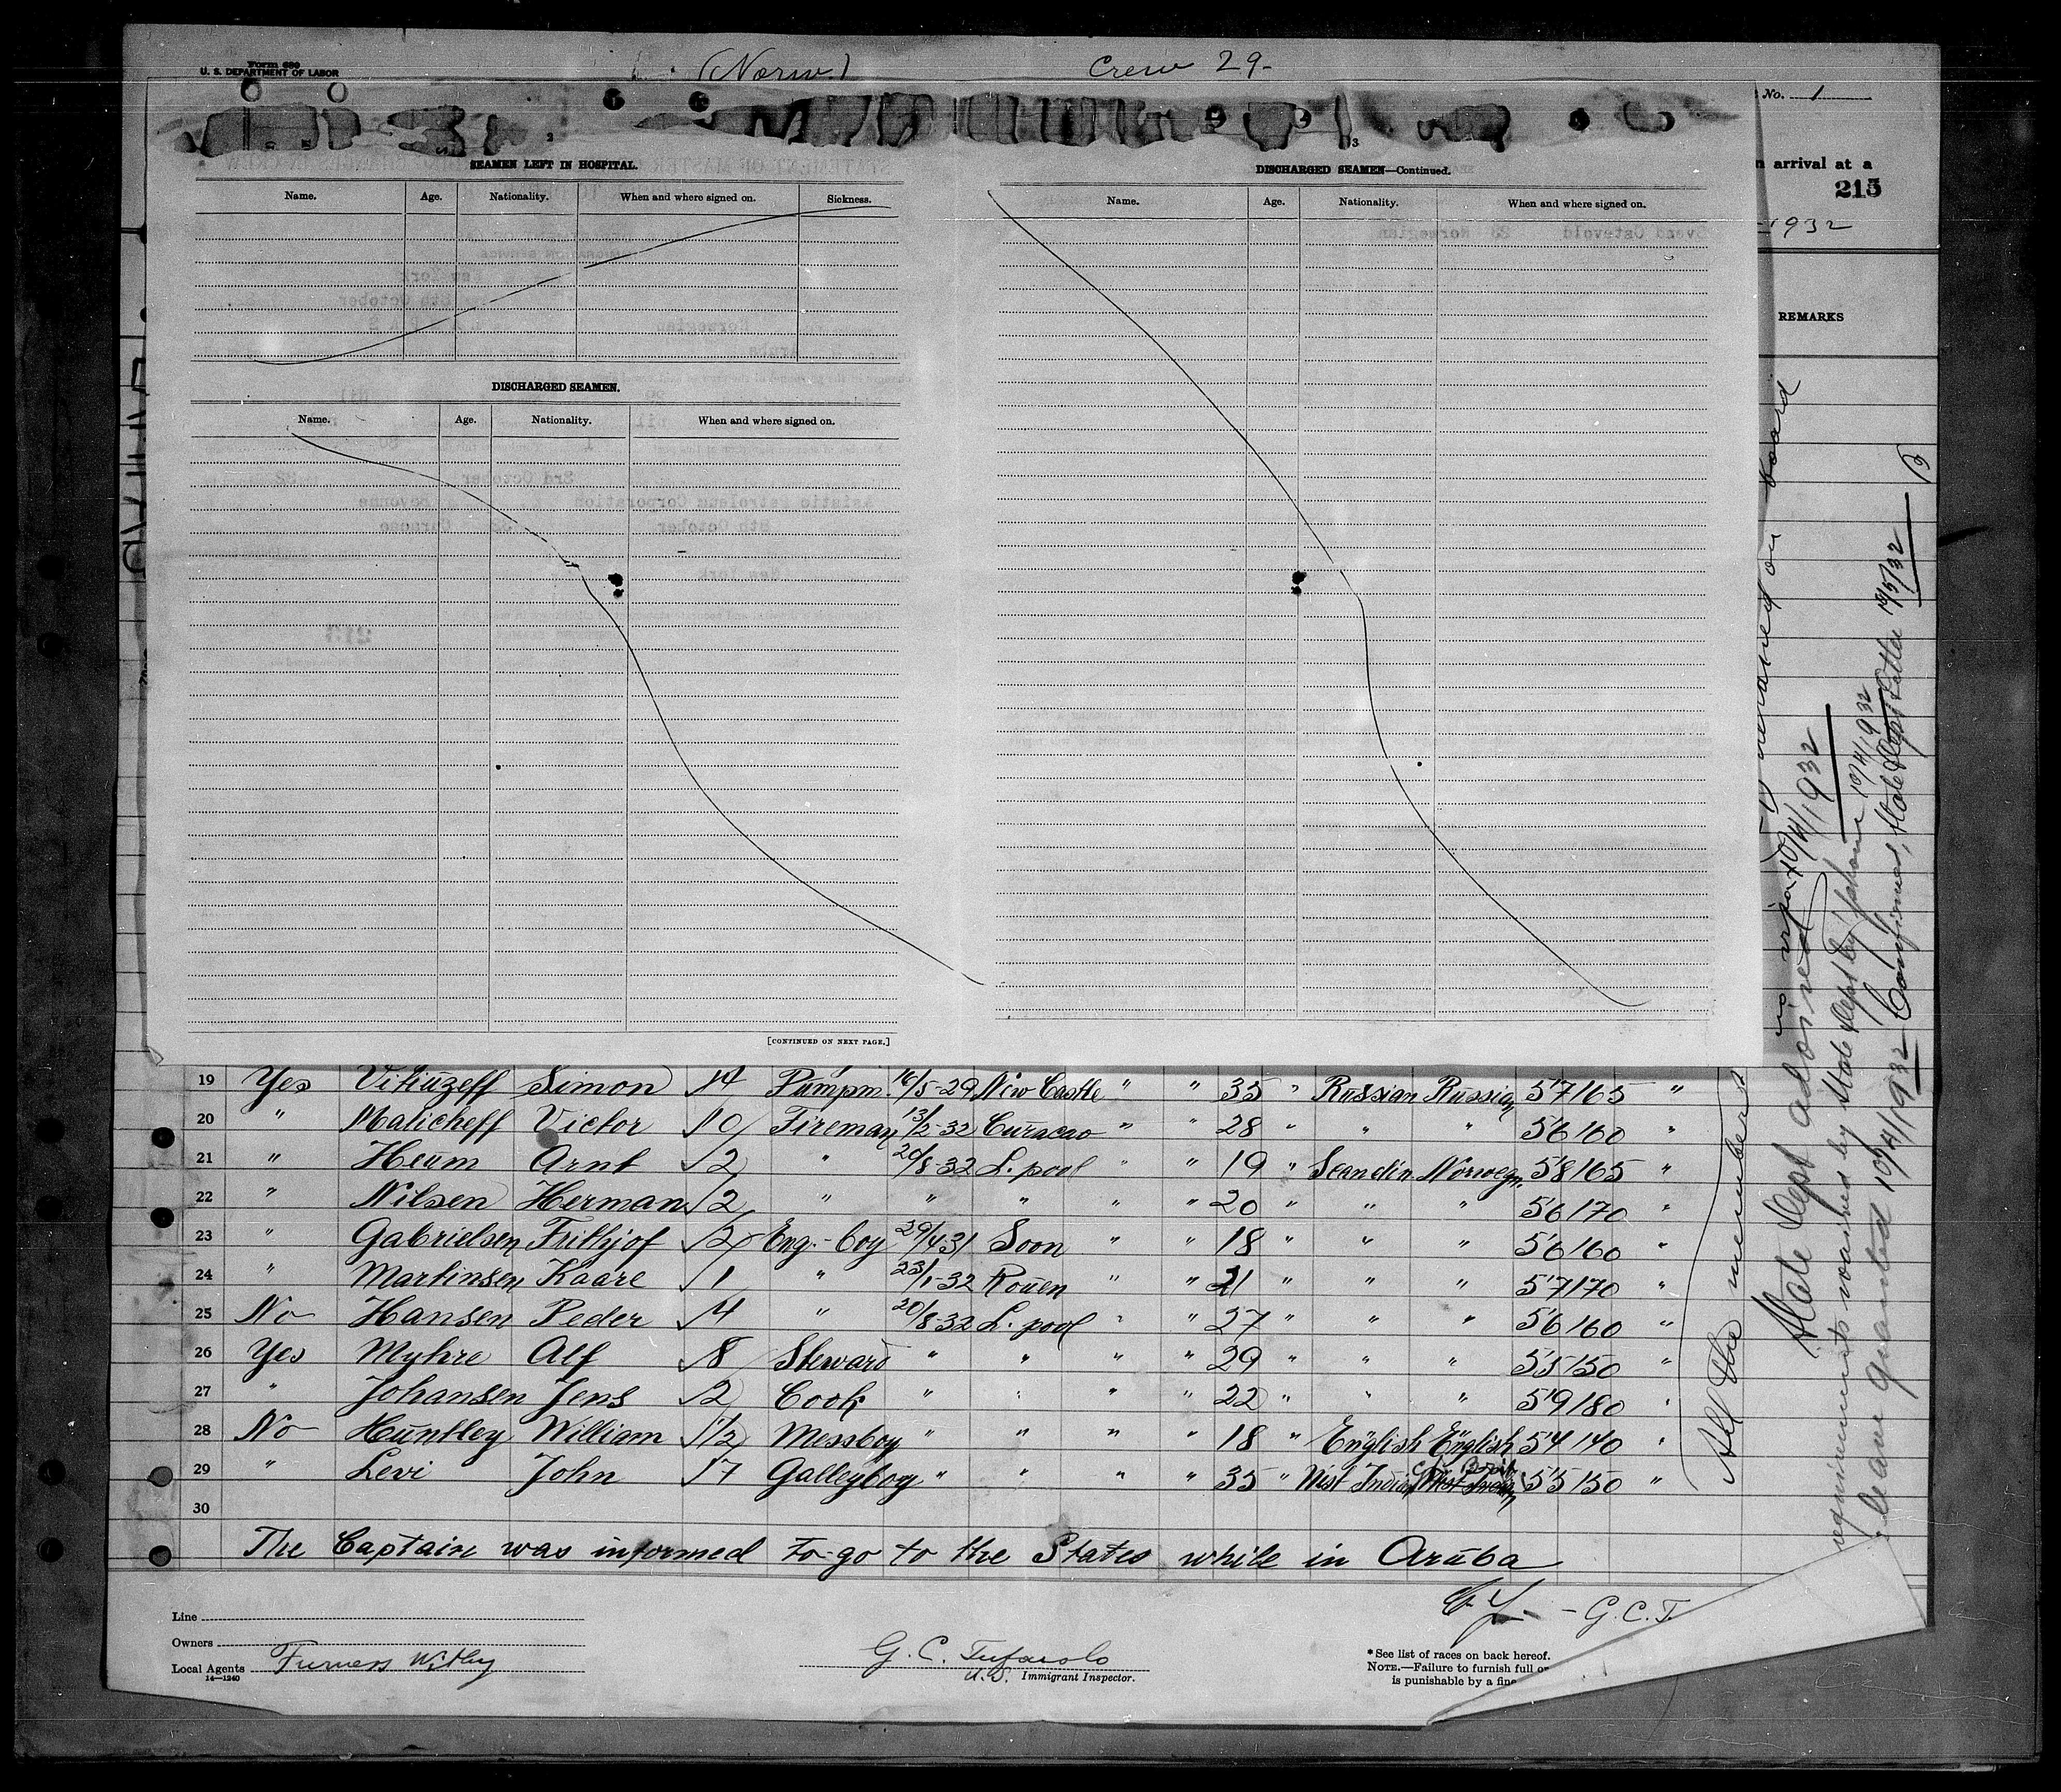 Form 680
U. S. DEPARTMENT OF LABOR
(Norw.)
Crew 29-
No. 1
arrival at a
215
-1932
REMARKS
2
SEAMEN LEFT IN HOSPITAL.
Name. Age. Nationality. When and where signed on. Sickness.
DISCHARGED SEAMEN.
Name. Age. Nationality. When and where signed on.
[CONTINUED ON NEXT PAGE.]
3
DISCHARGED SEAMEN—Continued.
Name. Age. Nationality. When and where signed on.
19 Yes Vitiuzeff Simon 14 Pumpm. 16/5-29 New Castle " " 35 " Russian Russian 5'7 165 "
20 " Malicheff Victor 10 Fireman 13/2-32 Curacao " " 28 " " " 5'6 160 "
21 " Heum Arnt 2 " 20/8-32 L.pool " " 19 " Scandin. Norwegn. 5'8 165 "
22 " Nilsen Herman 2 " " " " " 20 " " " 5'6 170 "
23 " Gabrielsen Frithjof 2 Eng.-boy 29/4-31 Soon " " 18 " " " 5'6 160 "
24 " Martinsen Kaare 1 " 23/1-32 Rouen " " 21 " " " 5'7 170 "
25 No Hansen Peder 4 " 20/8-32 L.pool " " 27 " " " 5'6 160 "
26 Yes Myhre Alf 8 Steward " " " " 29 " " " 5'5 150 "
27 " Johansen Jens 2 Cook " " " " 22 " " " 5'9 180 "
28 No Huntley William 1½ Messboy " " " " 18 " English English 5'4 140 "
29 " Levi John 17 Galleyboy " " " " 35 " West Indian Brit. 5'5 150 "
30
The Captain was informed to go to the States while in Aruba
G.C.T.
All the members
remained on board
State Dept advised 10/4/1932
requirements waived by State Dept by phone 10/4/1932
leave granted 10/4/1932 Confirmed, State Dept Letter 10/5/32
Line
Owners
Local Agents Furness Withy
14—1240
G. C. Tufarolo
U.S. Immigrant Inspector.
* See list of races on back hereof.
NOTE.—Failure to furnish full or
is punishable by a fine